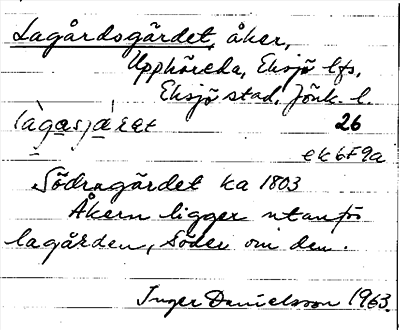 Lagårdsgärdet, åker,
Upphöreda, Eksjö lfs,
Eksjö stad, Jönk. l.
làgasjáret 26
ek 6F9a
Södragärdet ka 1803
Åkern ligger utanför
lagården, söder om den.
Inger Danielsson 1963.